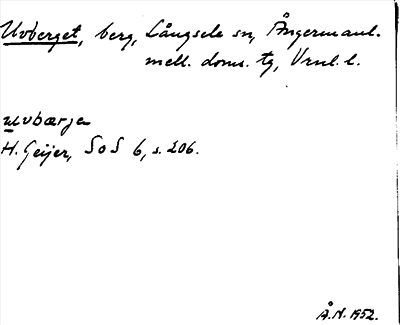 Uvberget, berg, Långsele sn, Ångermanl.
mell. doms. tg, Vrnl. l.
uvbærje
H. Geijer, SoS 6, s. 206.
Å.N. 1952.